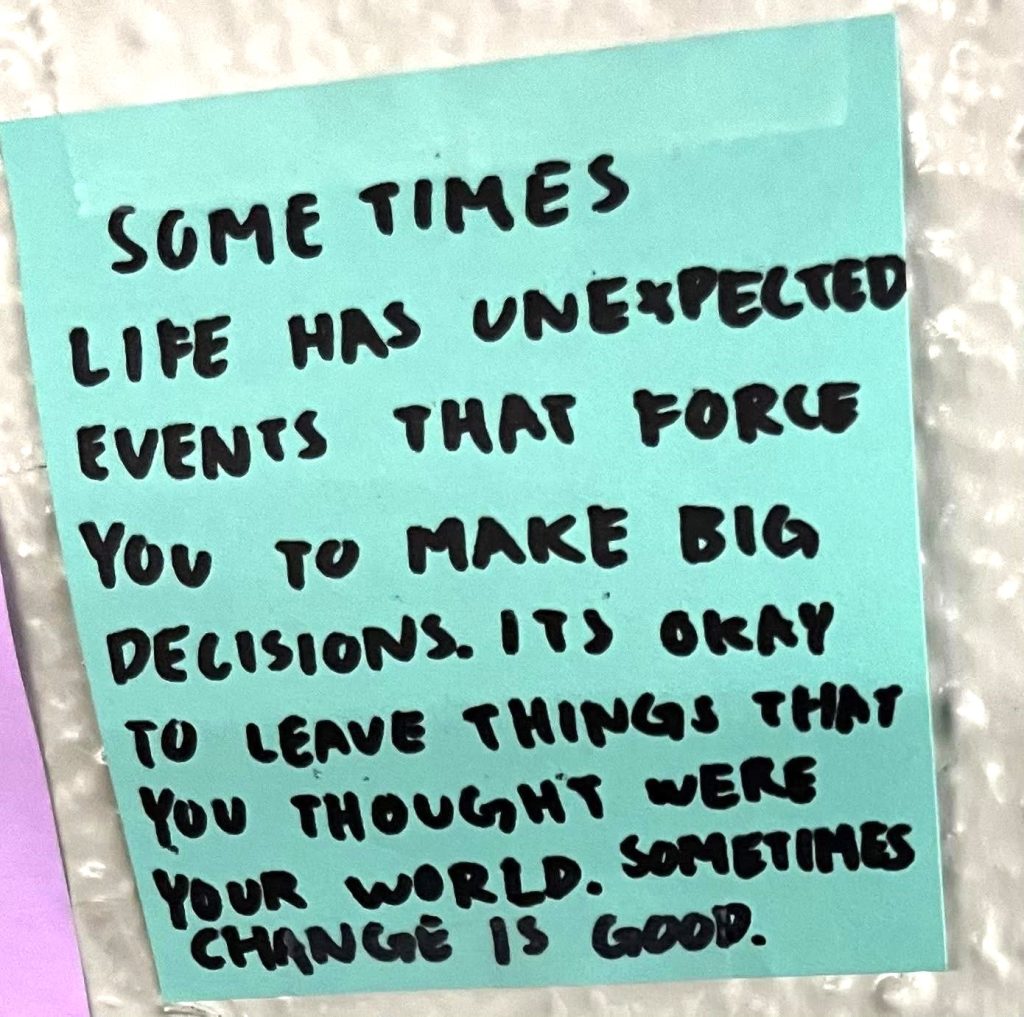 SOME TIMES
LIFE HAS UNEXPECTED
EVENTS THAT FORCE
YOU TO MAKE BIG
DECISIONS. ITS OKAY
TO LEAVE THINGS THAT
YOU THOUGHT WERE
YOUR WORLD. SOMETIMES
CHANGE IS GOOD.